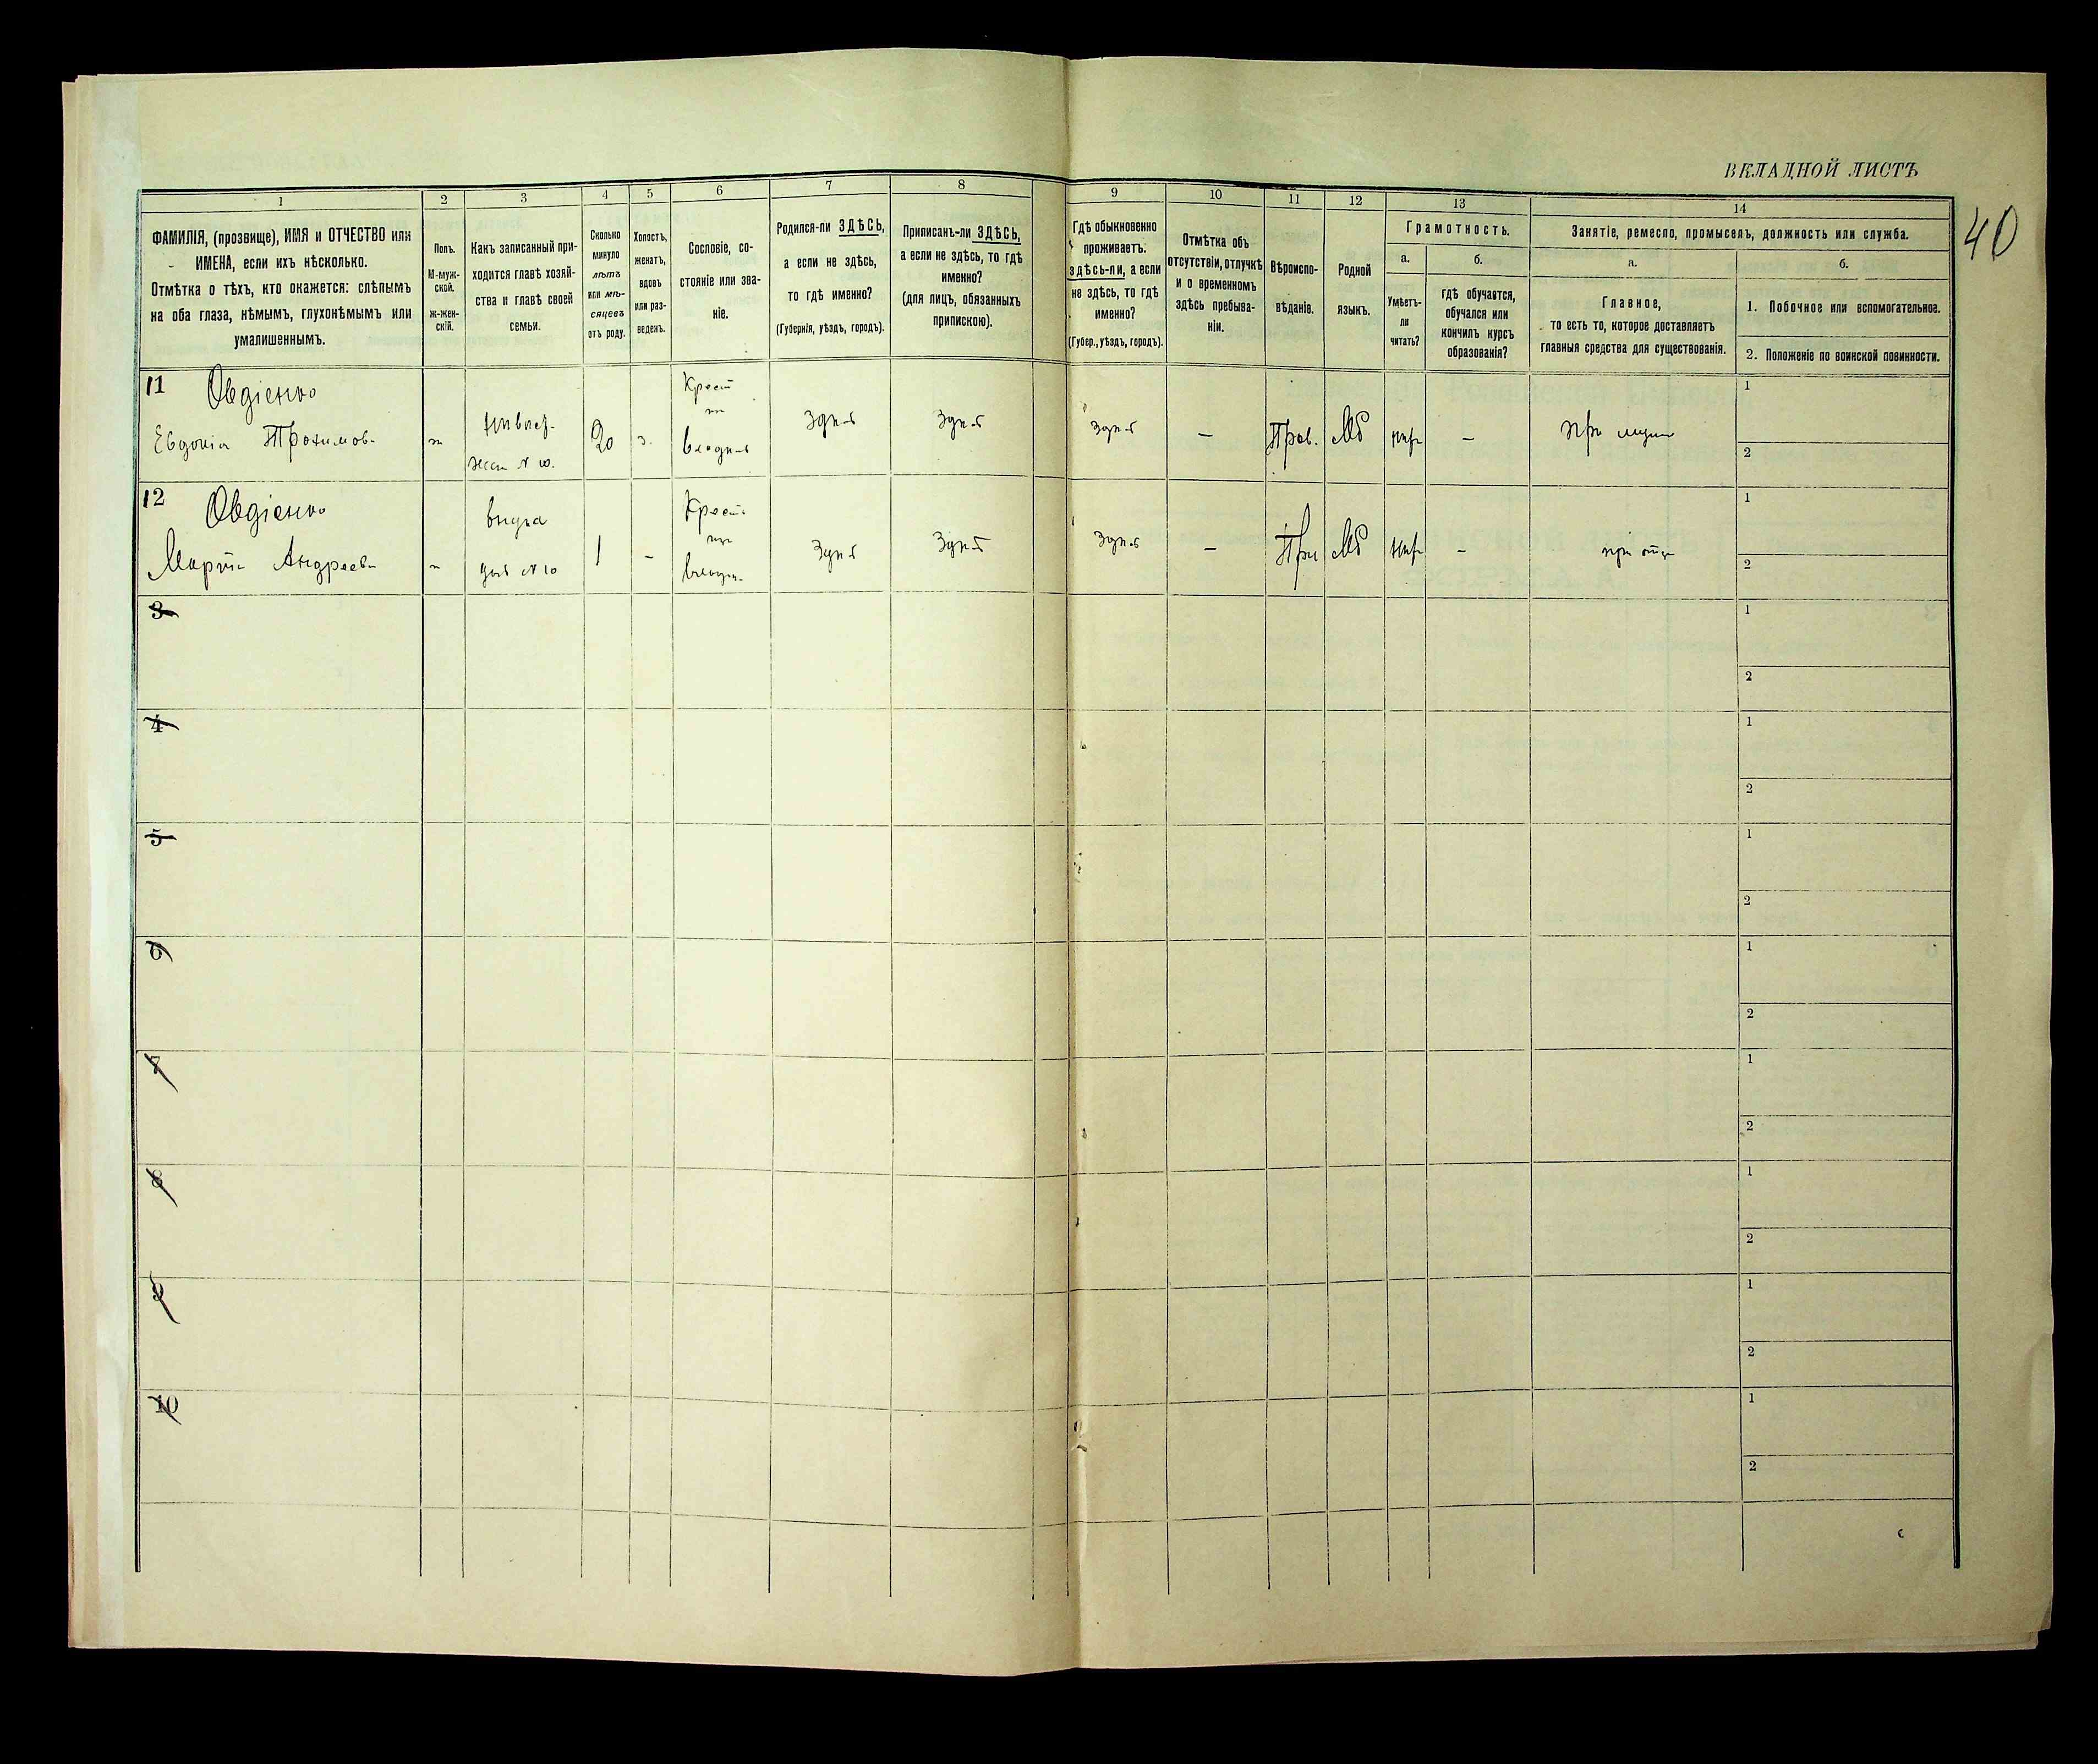 ВКЛАДНОЙ ЛИСТЪ
40
1
2
3
4
5
6
7
8
9
10
11
12
13
14
ФАМИЛІЯ, (прозвище), ИМЯ и ОТЧЕСТВО или
ИМЕНА, если ихъ нѣсколько.
Отмѣтка о тѣхъ, кто окажется: слѣпымъ
на оба глаза, нѣмымъ, глухонѣмымъ или
умалишеннымъ.
Полъ.
М-муж-
ской.
Ж-жен-
скій.
Какъ записанный при-
ходится главѣ хозяй-
ства и главѣ своей
семьи.
Сколько
минуло
лѣтъ
или мѣ-
сяцевъ
отъ роду.
Холостъ,
женатъ,
вдовъ
или раз-
веденъ.
Сословіе, со-
стояніе или зва-
ніе.
Родился-ли ЗДѢСЬ,
а если не здѣсь,
то гдѣ именно?
(Губернія, уѣздъ, городъ).
Приписанъ-ли ЗДѢСЬ,
а если не здѣсь, то гдѣ
именно?
(для лицъ, обязанныхъ
припискою).
Гдѣ обыкновенно
проживаетъ:
здѣсь-ли, а если
не здѣсь, то гдѣ
именно?
(Губер., уѣздъ, городъ).
Отмѣтка объ
отсутствіи, отлучкѣ
и о временномъ
здѣсь пребыва-
ніи.
Вѣроиспо-
вѣданіе.
Родной
языкъ.
Грамотность.
а.
Умѣетъ-
ли
читать?
б.
гдѣ обучается,
обучался или
кончилъ курсъ
образованія?
Занятіе, ремесло, промыселъ, должность или служба.
а.
Главное,
то есть то, которое доставляетъ
главныя средства для существованія.
б.
1. Побочное или вспомогательное.
2. Положеніе по воинской повинности.
11 Овдіенко
Евдокія Трохимов.
жена N 10.
20
з.
Крест
владѣл
здѣсь
здѣсь
здѣсь
—
Прав.
Мл
нѣт
—
При мужи
1
2
12 Овдіенко
Марія Андреева
внука
доч N 10
1
–
Крест.
владѣл.
здѣсь
здѣсь
здѣсь
–
Пра
Мл
нѣт
–
при отц
1
2
3
1
2
4
1
2
5
1
2
6
1
2
7
1
2
8
1
2
9
1
2
10
1
2